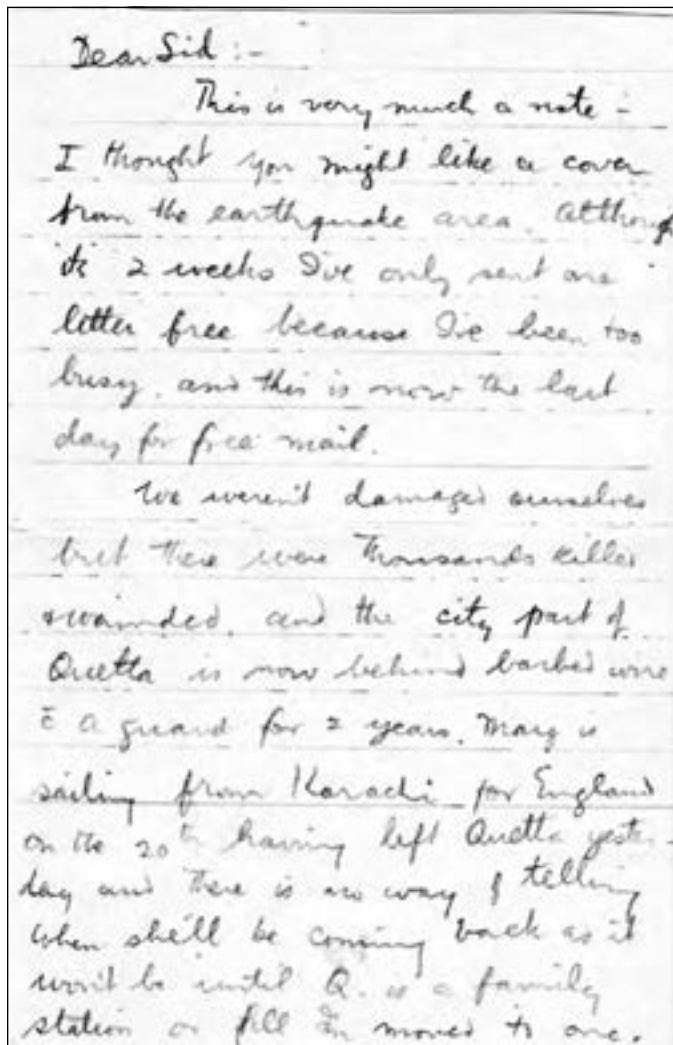 Dear Sid :-
This is very much a note -
I thought you might like a cover
from the earthquake area. Although
its 2 weeks I've only sent one
letter free because I've been too
busy, and this is now the last
day for free mail.
We weren't damaged ourselves
but there were thousands killed
& wounded, and the city part of
Quetta is now behind barbed wire
c̄ a guard for 2 years. Marg is
sailing from Karachi for England
on the 20th having left Quetta yester-
day and there is no way of telling
when she'll be coming back as it
won't be until Q. is a family
station or till I'm moved to one.